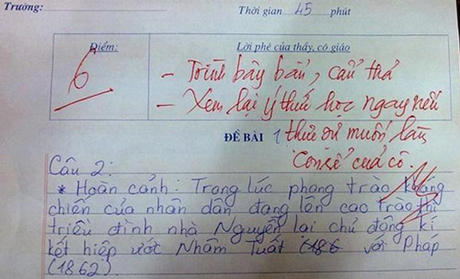 Trường:
Thời gian 45 phút
Điểm:
Lời phê của thầy, cô giáo
6
- Trình bày bẩn, cẩu thả
- Xem lại ý thức học ngay nếu
ĐỀ BÀI
thực sự muốn làm
"Con rể" của cô.
Câu 2:
* Hoàn cảnh: Trong lúc phong trào kháng
chiến của nhân dân đang lên cao trào thì
triều đình nhà Nguyễn lại chủ động kí
kết hiệp ước Nhâm Tuất (186 với Pháp
(1862)